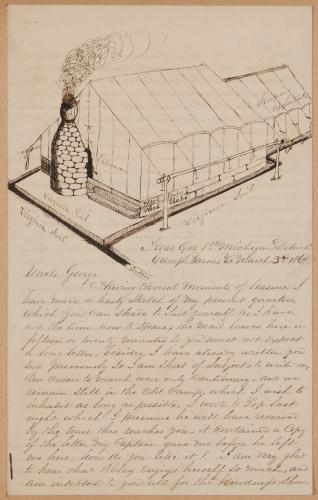 Virginia Soil
Virginia Soil
Virginia Soil
Head Qrs 1st Michigan
Camp March 3rd 186
Uncle George
Having Several Moments of leasure I
have made a hasty Sketch of my present quarters,
which you can shade to suit yourself as I have
not the time now to spare, the Mail leaves here in
fifteen or twenty minutes so you must not expect
a long letter, besides I have already written you
two previously so I am short of subjects to write on,
Our orders to march were only Cautionary, and we
remain still in the Old Camp, which I wish to
inhabit as long as possible, I wrote to Pa last
night which I presume he will have received
by the time this reaches you, it contained a Copy
of the letter my Captain gave me before he left
me here, how do you like it! I am very glad
to hear that enjoys herself so much, and
am indebted to you all for the Kindness